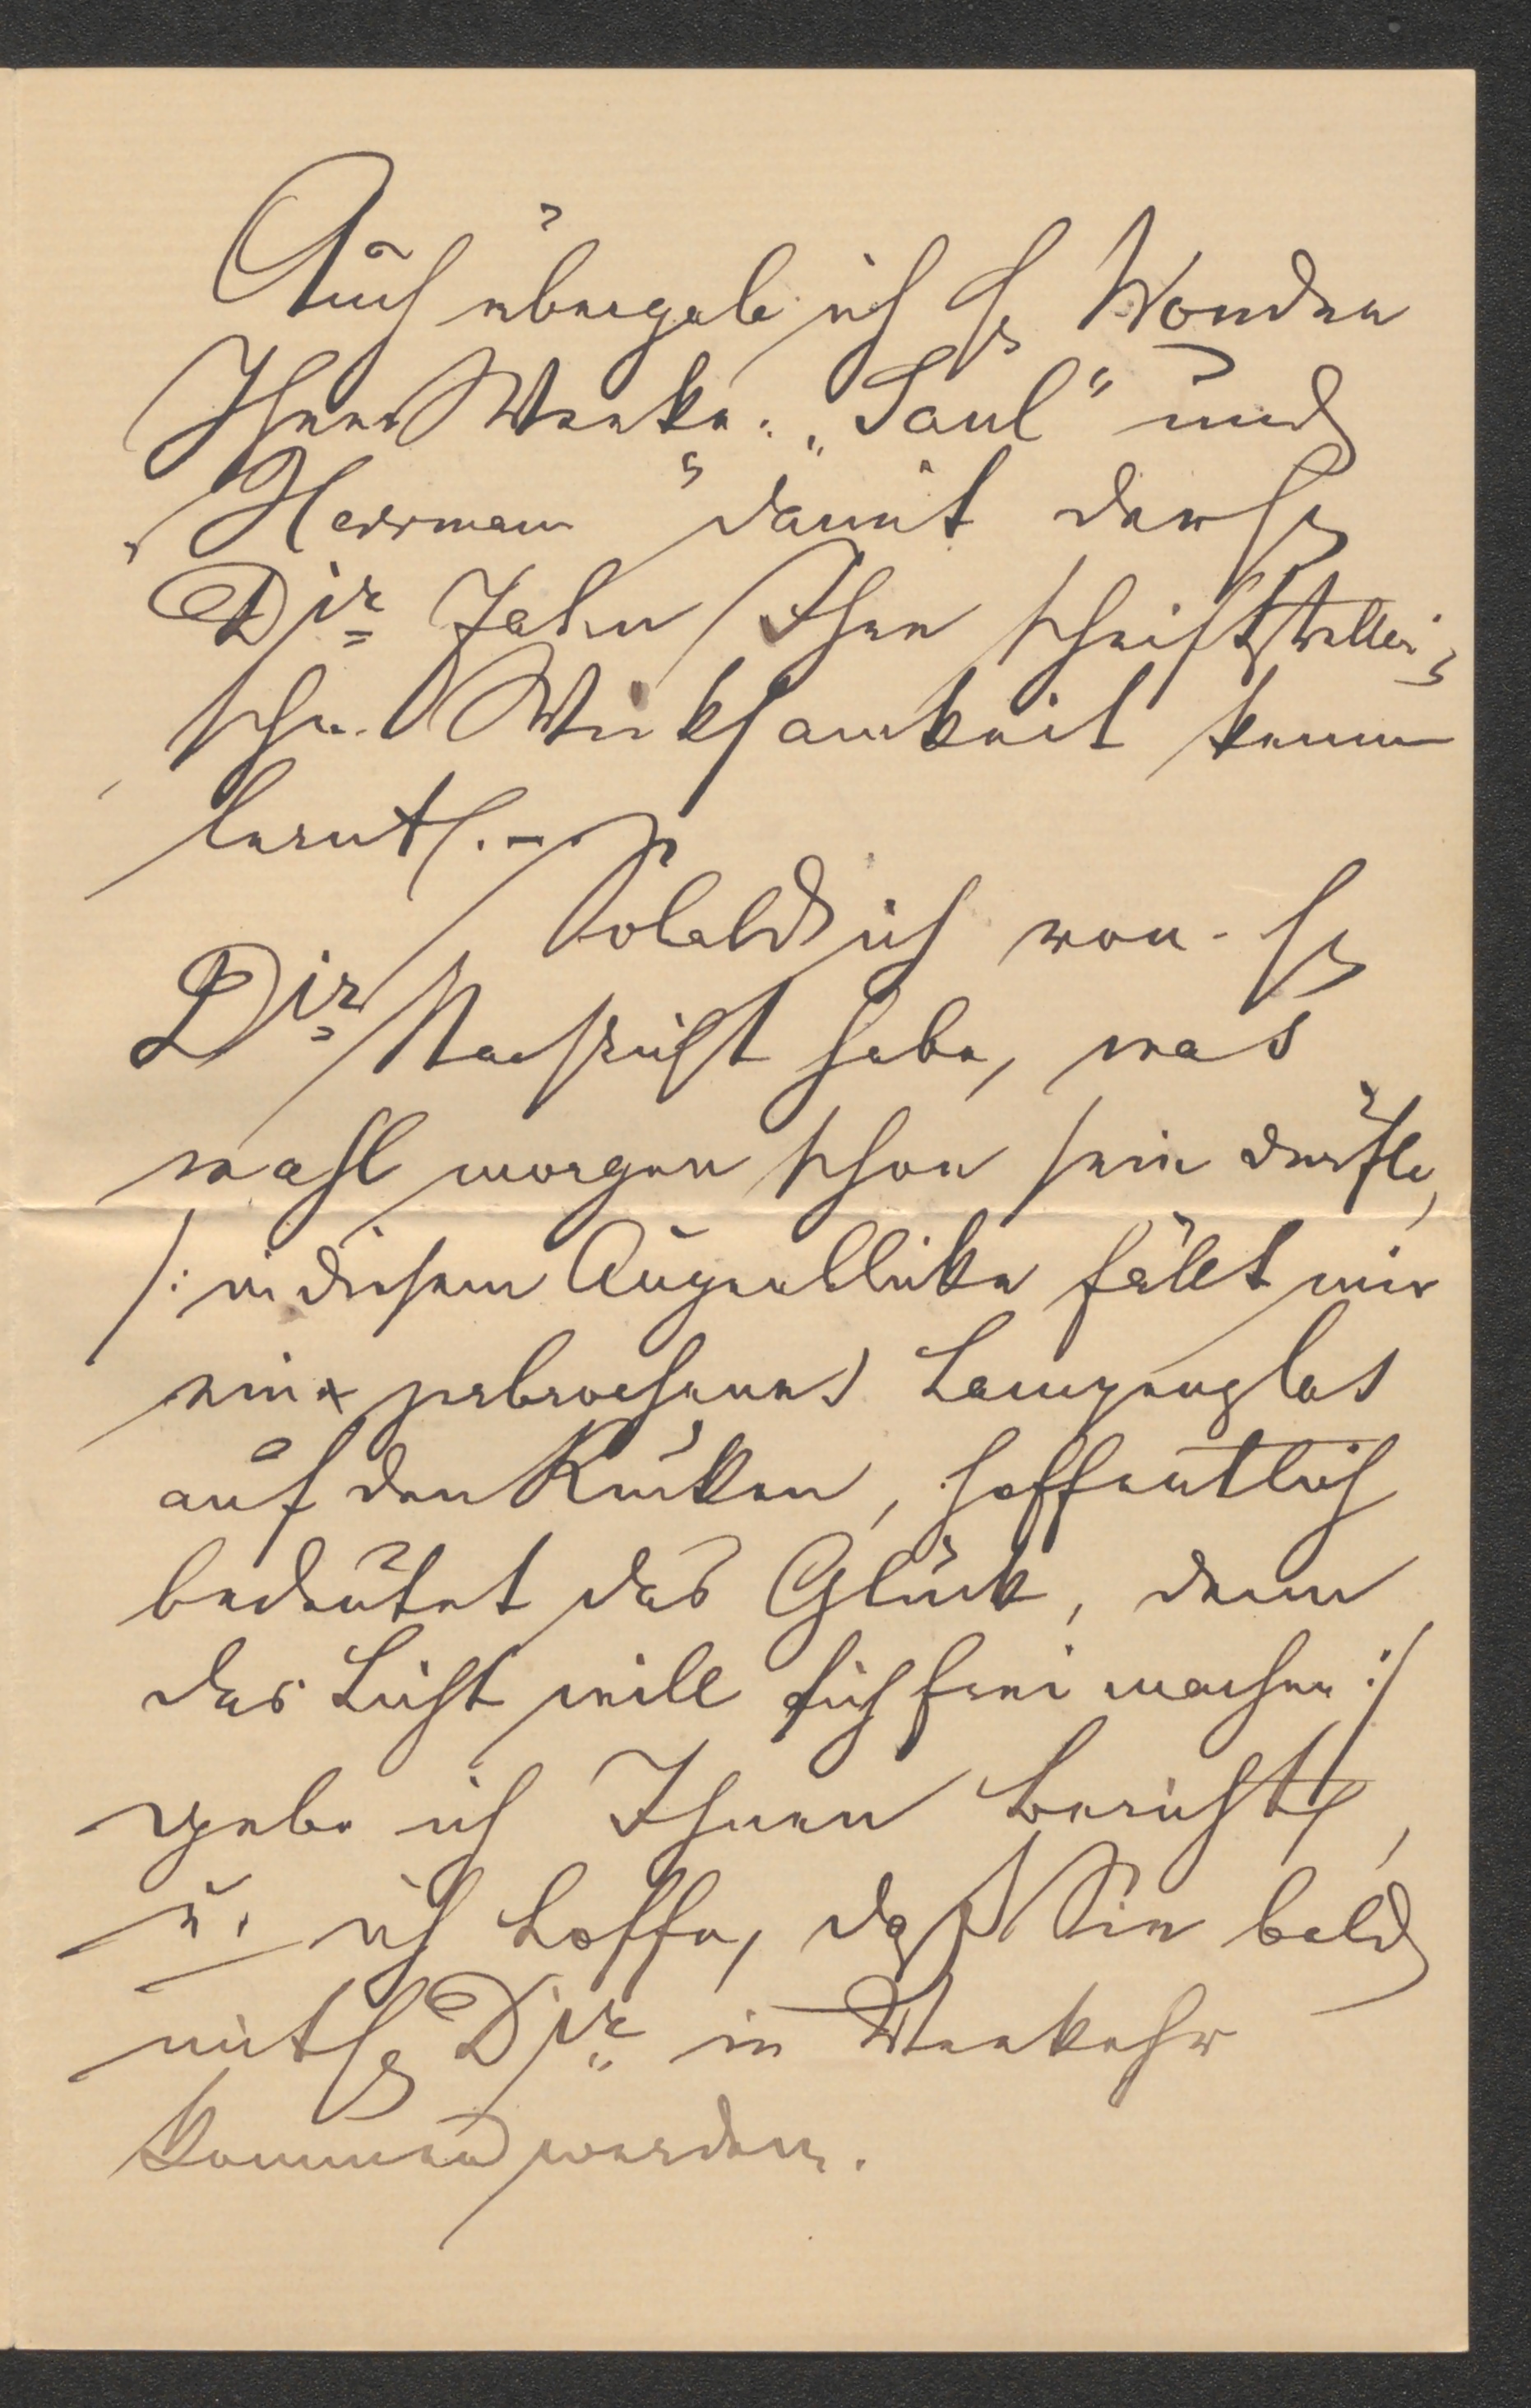 Auch übergebe ich H. Wondra
Ihre Werke: „Saul" und
„Herrman" damit der H.
Dir. Jahn Ihre schriftstelleri-
sche Wirksamkeit kennen
lernt. –
Sobald ich von H.
Dir. Nachricht habe, was
wohl morgen schon sein dürfte,
/: in diesem Augenblicke fällt mir
ein zerbrochenes Lampenglas
auf den Rücken, hoffentlich
bedeutet das Glück, denn
das Licht will sich frei machen :/
gebe ich Ihnen Bericht,
u. ich hoffe, daß Sie bald
mit H. Dir. in Verkehr
kommen werden.